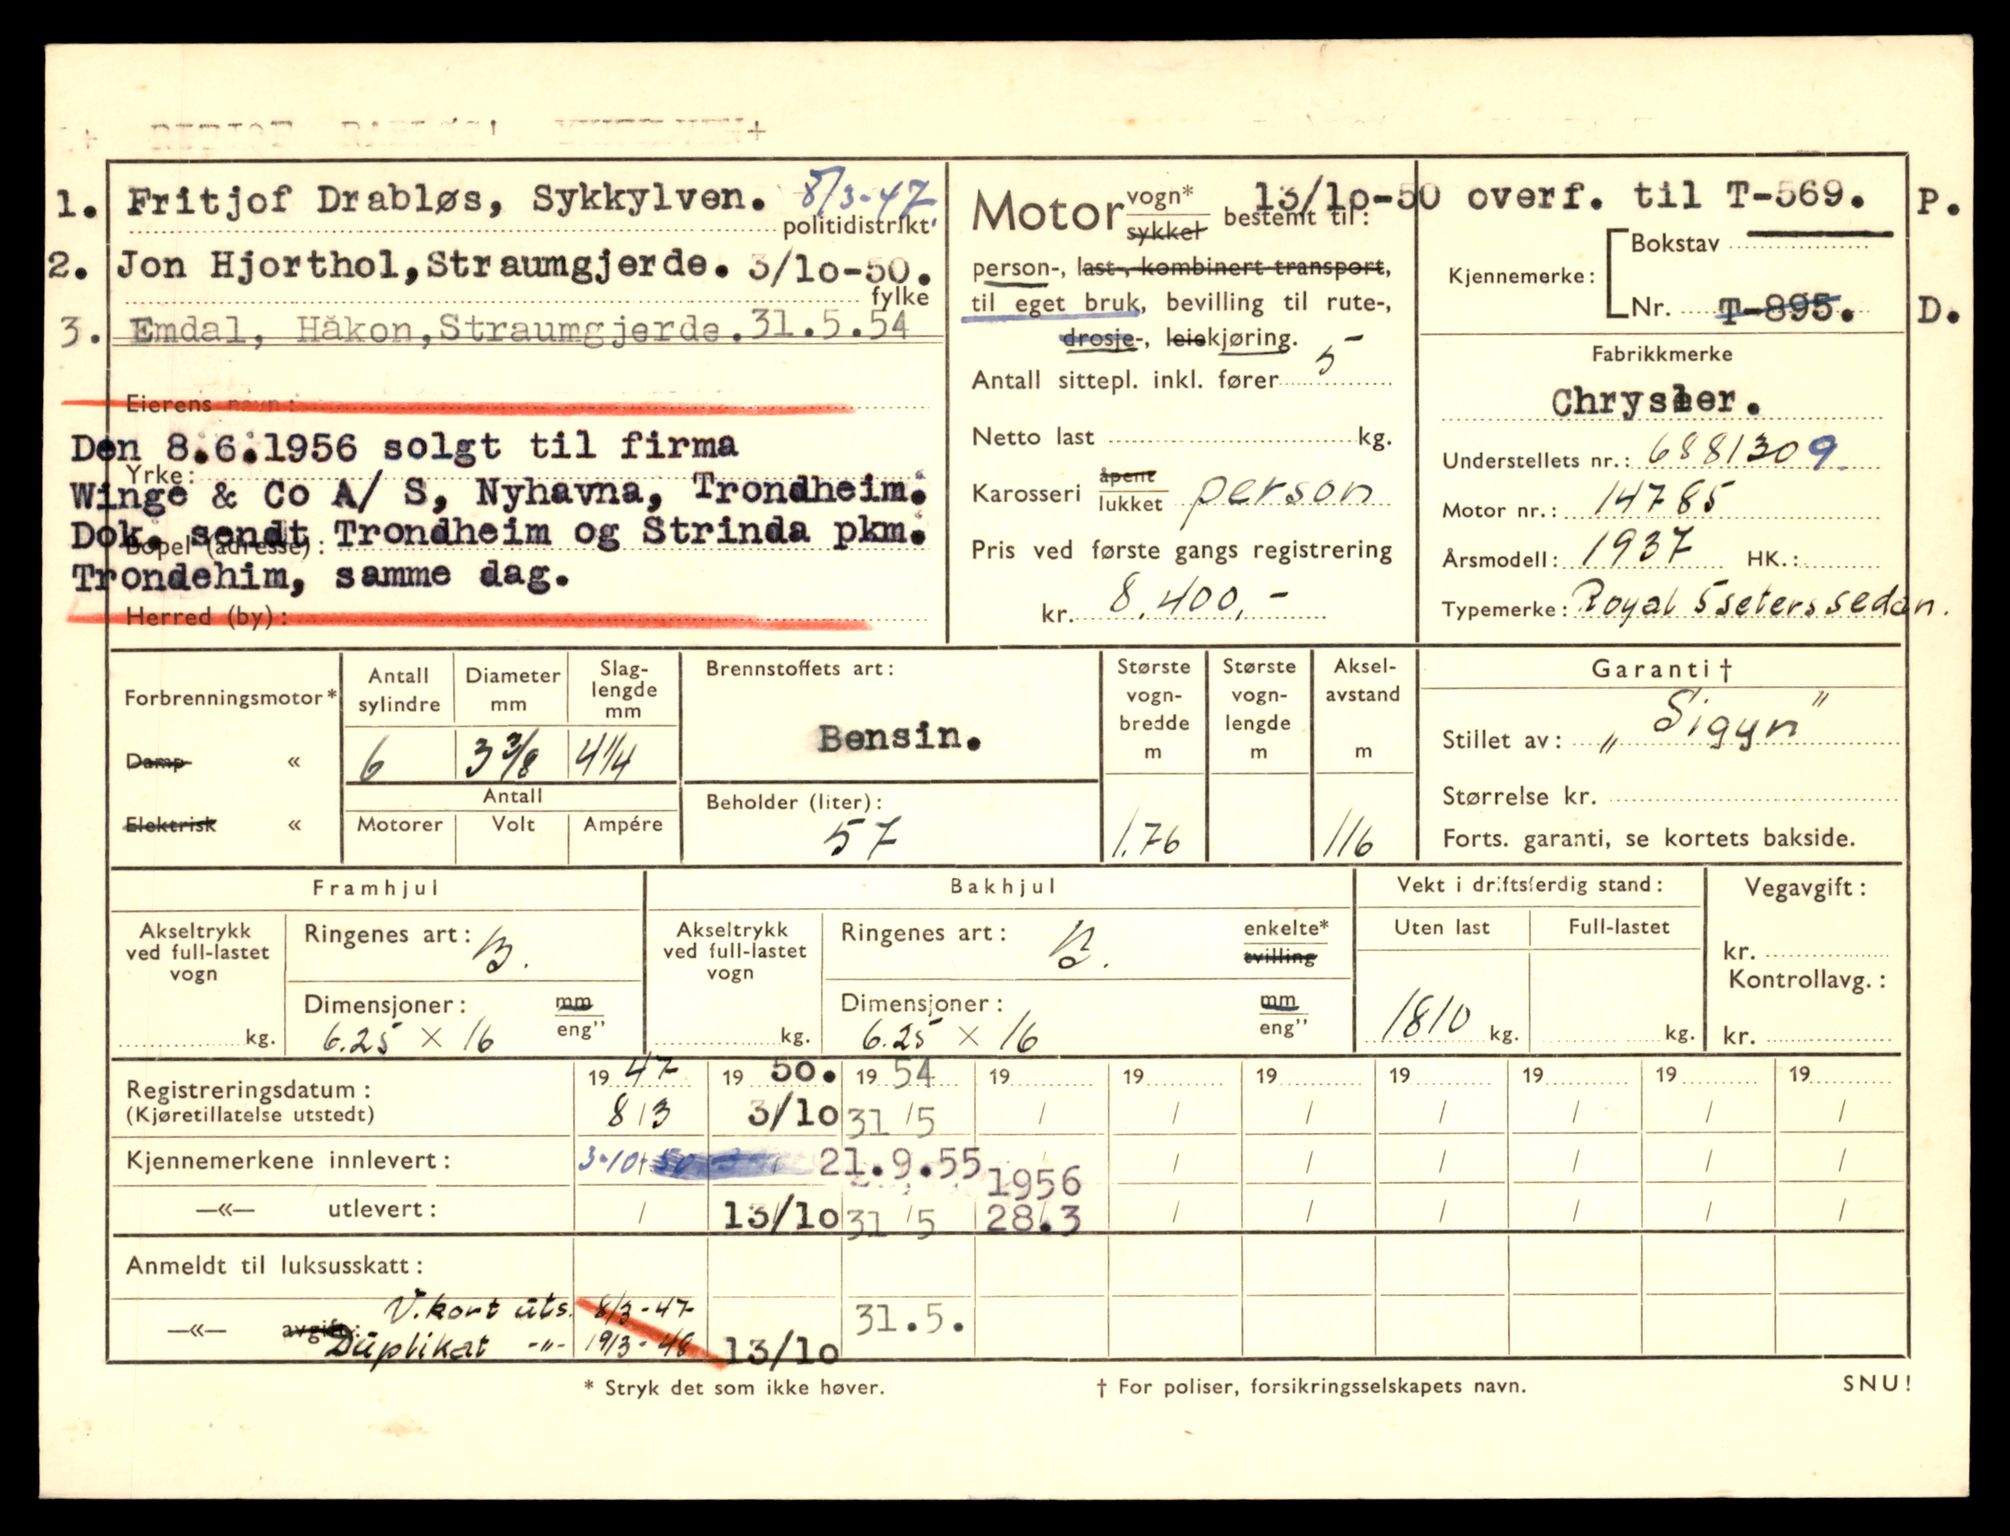 1. Fritjof Drabløs, Sykkylven. 8/3-47
politidistrikt
2. Jon Hjorthol, Straumgjerde. 3/10-50.
fylke
3. Emdal, Håkon, Straumgjerde. 31.5.54
Eierens navn:
Den 8.6.1956 solgt til firma
Yrke:
Winge & Co A/ S, Nyhavna, Trondheim.
Dok. sendt Trondheim og Strinda pkm.
Bopel (adresse):
Trondehim, samme dag.
Herred (by):
Motor vogn* sykkel bestemt til:
person-, last-, kombinert transport,
til eget bruk, bevilling til rute-,
drosje-, leiekjøring.
Antall sittepl. inkl. fører 5
Netto last kg.
Karosseri åpent lukket person
Pris ved første gangs registrering
kr. 8.400,-
13/10-50 overf. til T-569. P.
Kjennemerke: Bokstav
Nr. T-895. D.
Fabrikkmerke
Chrysler.
Understellets nr.: 6881309
Motor nr.: 14785
Årsmodell: 1937 HK.:
Typemerke: Royal 5seters sedan.
Forbrenningsmotor*
Damp «
Elektrisk «
Antall sylindre
6
Diameter mm
3 3/8
Slag-lengde mm
4 1/4
Antall
Motorer Volt Ampére
Brennstoffets art:
Bensin.
Beholder (liter):
57
Største vogn-bredde m
1.76
Største vogn-lengde m
Aksel-avstand m
116
Garanti †
Stillet av: „Sigyn"
Størrelse kr.
Forts. garanti, se kortets bakside.
Framhjul
Akseltrykk ved full-lastet vogn
kg.
Ringenes art: B.
Dimensjoner: mm eng"
6.25 × 16
Bakhjul
Akseltrykk ved full-lastet vogn
kg.
Ringenes art: B. enkelte* tvilling
Dimensjoner: mm eng"
6.25 × 16
Vekt i driftsferdig stand:
Uten last Full-lastet
1810 kg. kg.
Vegavgift:
kr.
Kontrollavg.:
kr.
Registreringsdatum: 1947 1950. 1954 19 19 19 19 19 19 19
(Kjøretillatelse utstedt) 8/3 3/10 31/5 / / / / / / /
Kjennemerkene innlevert: 3.10.50 21.9.55 / / / / / / /
1956
—«— utlevert: / 13/10 31/5 28.3 / / / / / /
Anmeldt til luksusskatt:
V.kort uts. 8/3-47 31.5.
—«— avgift:
Duplikat -"- 19/3-48 13/10
* Stryk det som ikke høver. † For poliser, forsikringsselskapets navn. SNU!